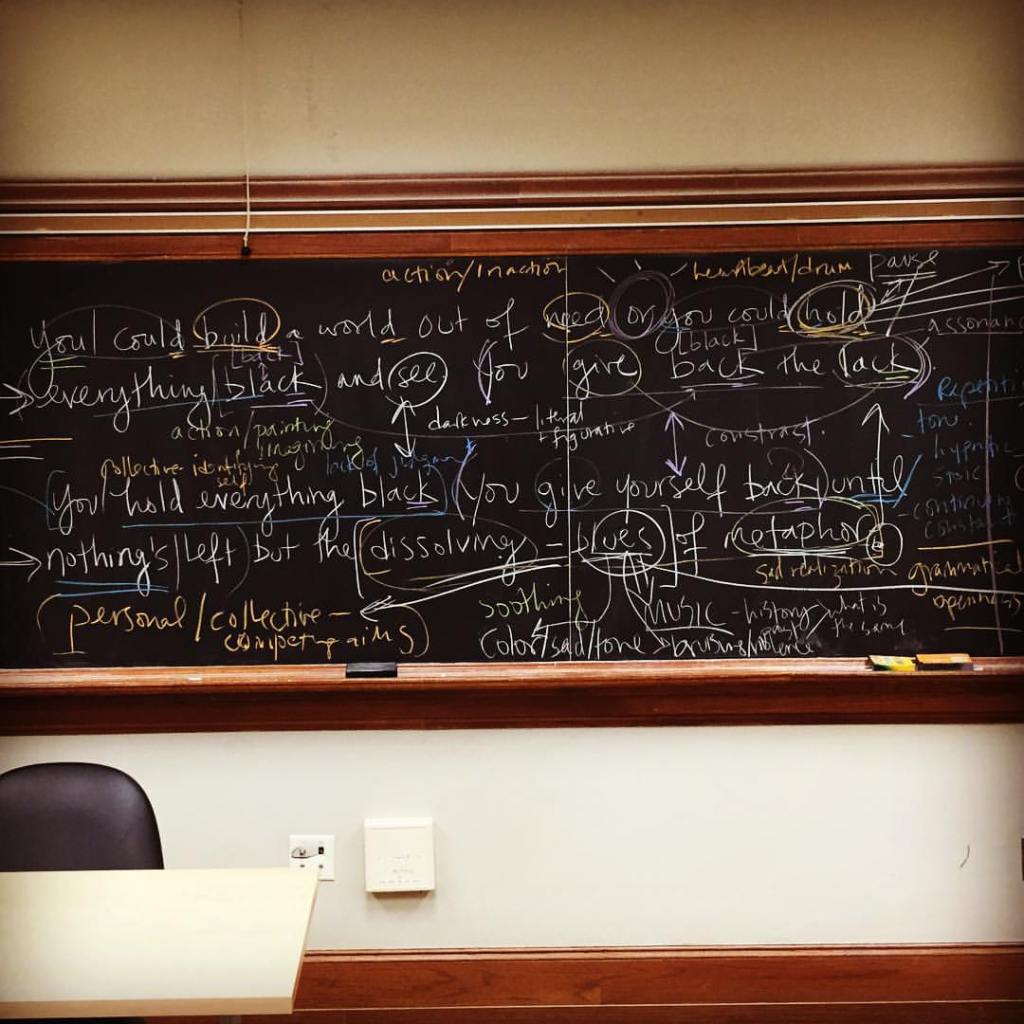 action/inaction heartbeat/drum pause
You could build a world out of need or you could hold
[back] [back] assonance
everything black and see You give back the lack
darkness - literal + figurative
action/painting imagining contrast.
collective identifying self lack of
You hold everything black You give yourself back until
nothing's left but the dissolving - blues of metaphor
sad realization grammatical openness
personal/collective - competing aims
soothing MUSIC - history/what is the same
Color/sad/tone bruising/violence
Repetition
tone.
hypnotic
stoic
continuing
constant